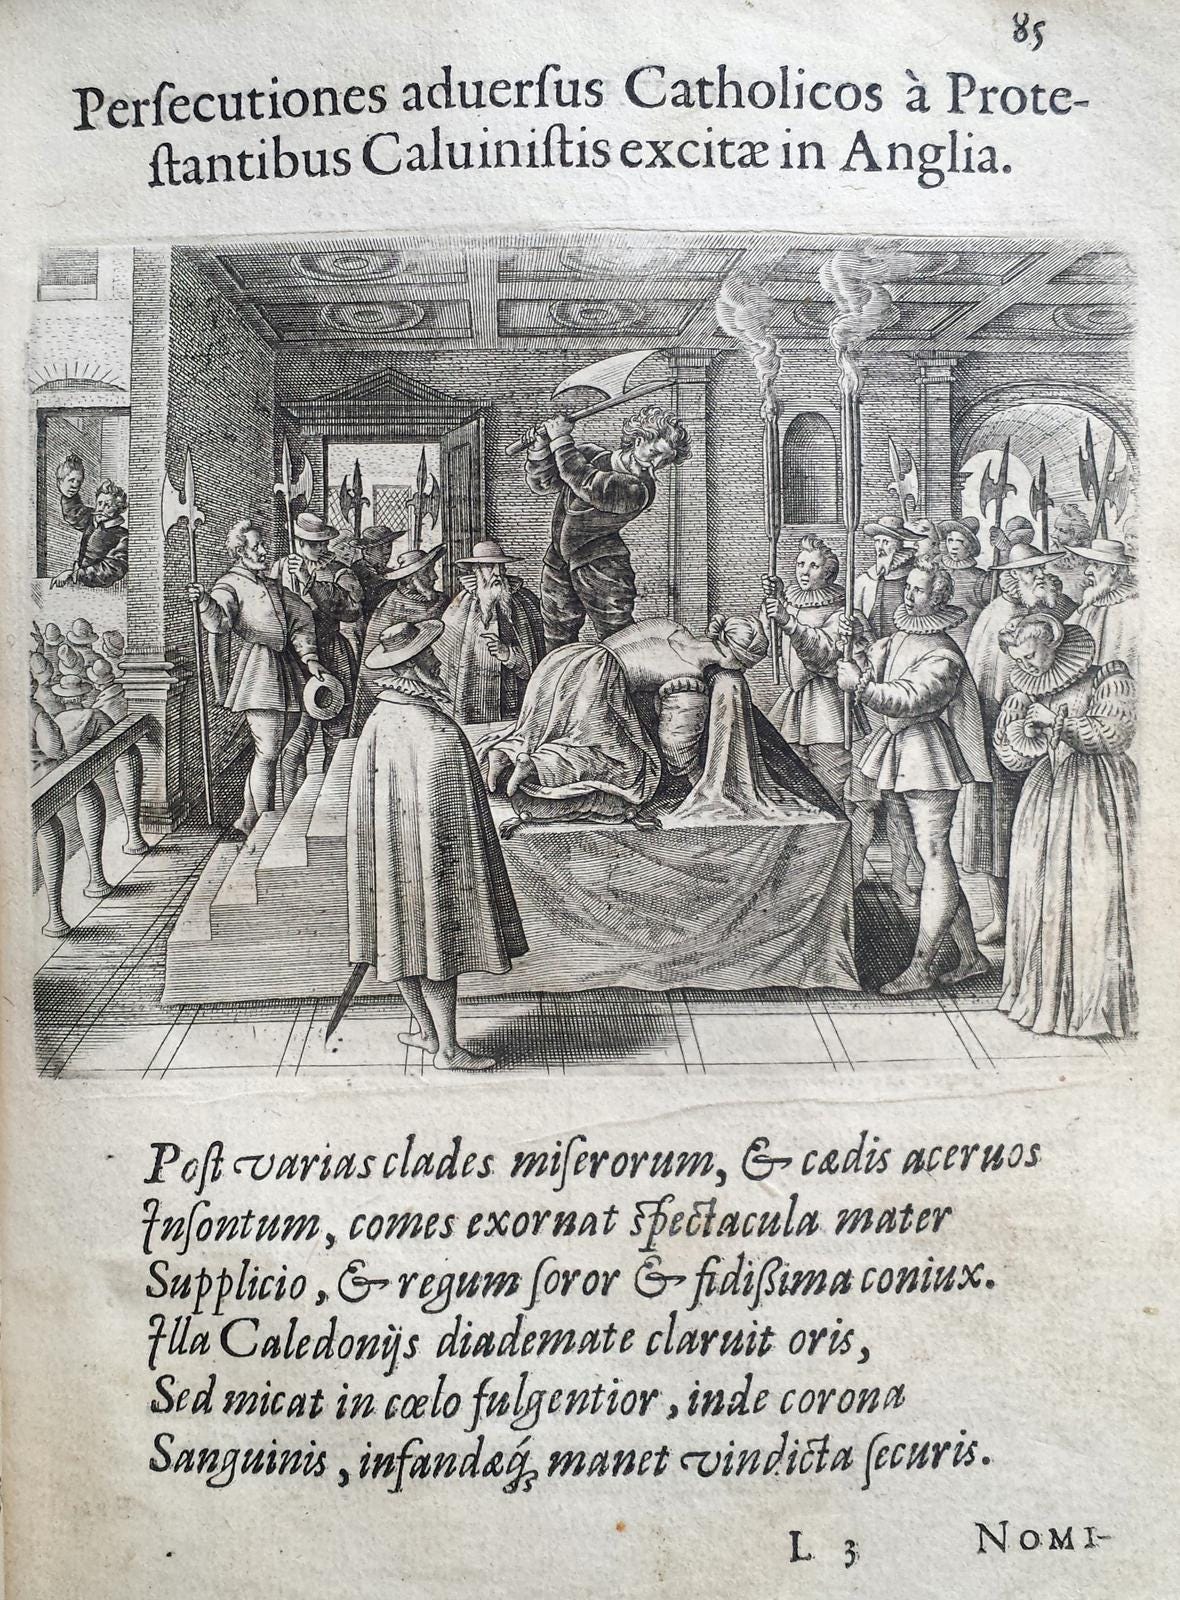 85
Perſecutiones aduerſus Catholicos à Prote-
ſtantibus Caluiniſtis excitæ in Anglia.
Poſt varias clades miſerorum, & cædis aceruos
Inſontum, comes exornat ſpectacula mater
Supplicio, & regum ſoror & fidiſsima coniux.
Illa Caledonijs diademate claruit oris,
Sed micat in cœlo fulgentior, inde corona
Sanguinis, infandæq́ꝫ manet vindicta ſecuris.
L 3 NOMI-